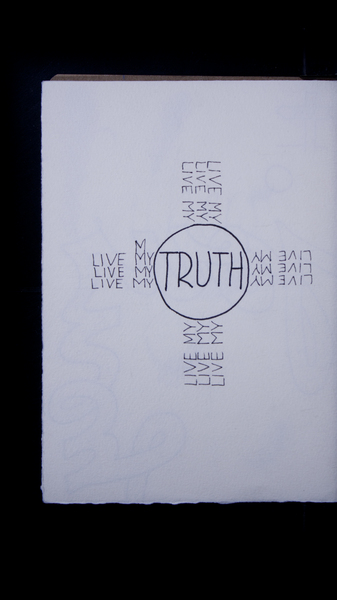 LIVE MY
LIVE MY
LIVE MY
N
LIVE MY
LIVE MY
LIVE MY
TRUTH
LIVE MY
LIVE MY
LIVE MY
LIVE MY
LIVE MY
LIVE MY